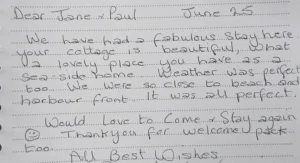 Dear Jane & Paul June 25
We have had a fabulous stay here
your cottage is beautiful, what
a lovely place you have as a
sea-side home. Weather was perfect
too. We were so close to beach and
harbour front. It was all perfect.
Would Love to Come & Stay again
☹ Thankyou for welcome pack
too.
All Best Wishes